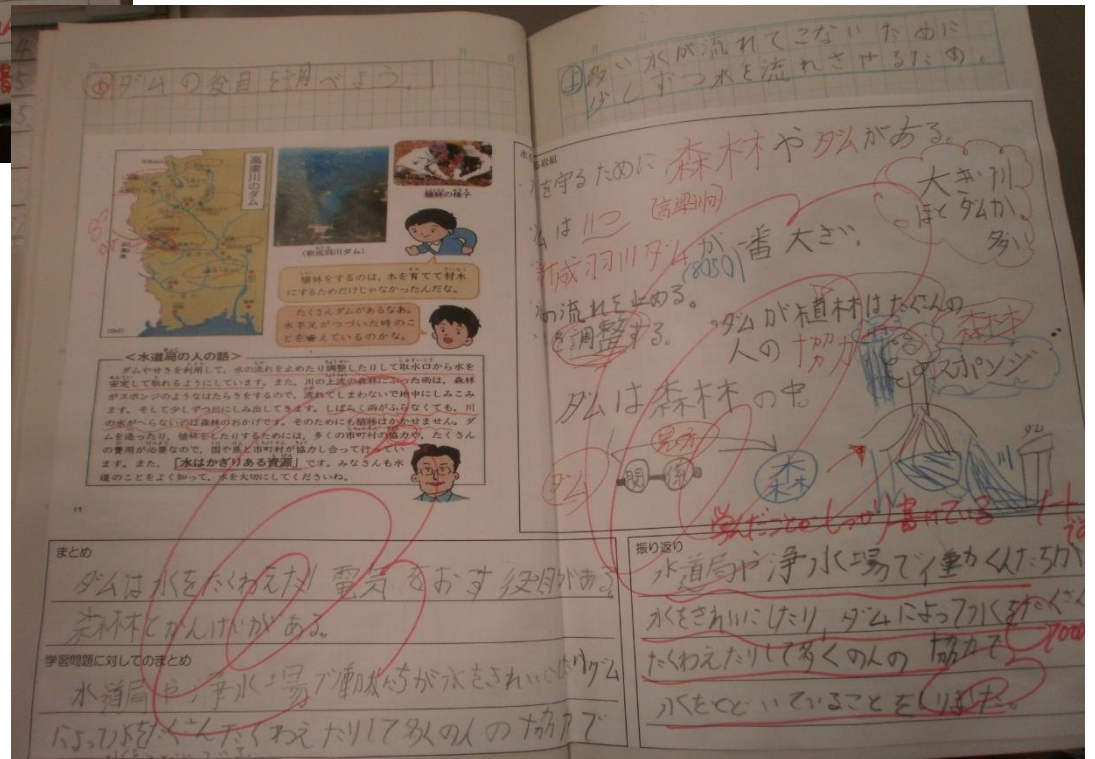 め ダムの役目を調べよう。
高梁川のダム
(新成羽川ダム)
植林の様子
植林をするのは、木を育てて材木
にするためだけじゃなかったんだな。
たくさんダムがあるなあ。
水不足がつづいた時のこ
とを考えているのかな。
<水道局の人の話>
ダムやせきを利用して、水の流れを止めたり調整したりして取水口から水を
安定して取れるようにしています。また、川の上流の森林にふった雨は、森林
がスポンジのようなはたらきをするので、流れてしまわないで地中にしみこみ
ます。そして少しずつ川にしみ出してきます。しばらく雨がふらなくても、川
の水がへらないのは森林のおかげです。そのためにも植林はかかせません。ダ
ムを造ったり、植林をしたりするためには、多くの市町村の協力や、たくさん
の費用が必要なので、国や県と市町村が協力し合って行ってい
ます。また、「水はかぎりある資源」です。みなさんも水
道のことをよく知って、水を大切にしてくださいね。
11
まとめ
ダムは水をたくわえたり電気をおす役目がある。
森林とかんけいがある。
学習問題に対してのまとめ
水道局や浄水場で働く人たちが水をきれいにしたりダム
によって水をたくさんたくわえたりして多くの人の協力で
多い水が流れてこないために
少しずつ水を流れさせるため。
を守るために森林やダムがある。
ムは11こ
高梁川
新成羽川ダムが一番大きい。
(8050)
大きい川
ほどダムが
多い
の流れを止める。
を調整する。
ダムが植林はたくさんの
人の協力
森林
スポンジ
ダムは森林の中
ダム
関係
森
川
ダム
学んだことがしっかり書けている
振り返り
水道局や浄水場で働くんたちが
水をきれいにしたり、ダムによって水をたくさん
たくわえたりして多くの人の協力で
水をとどいていることをしりました。